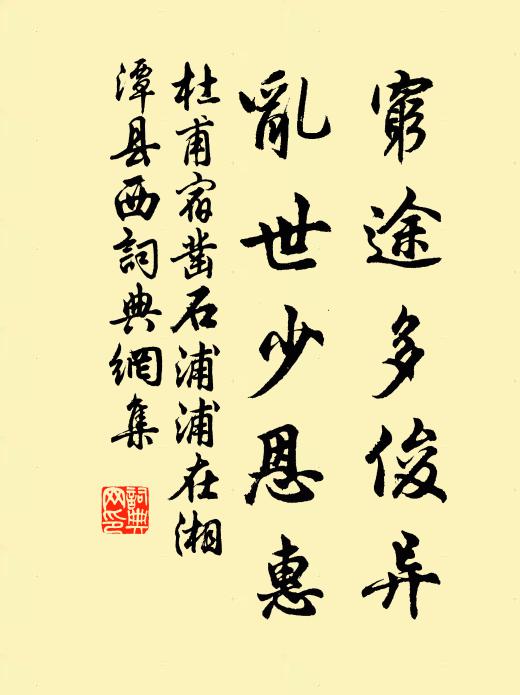 窮途多俊异
亂世少恩惠
杜甫宿鑿石浦浦在湘
潭县西詞典網集
詞典
网印